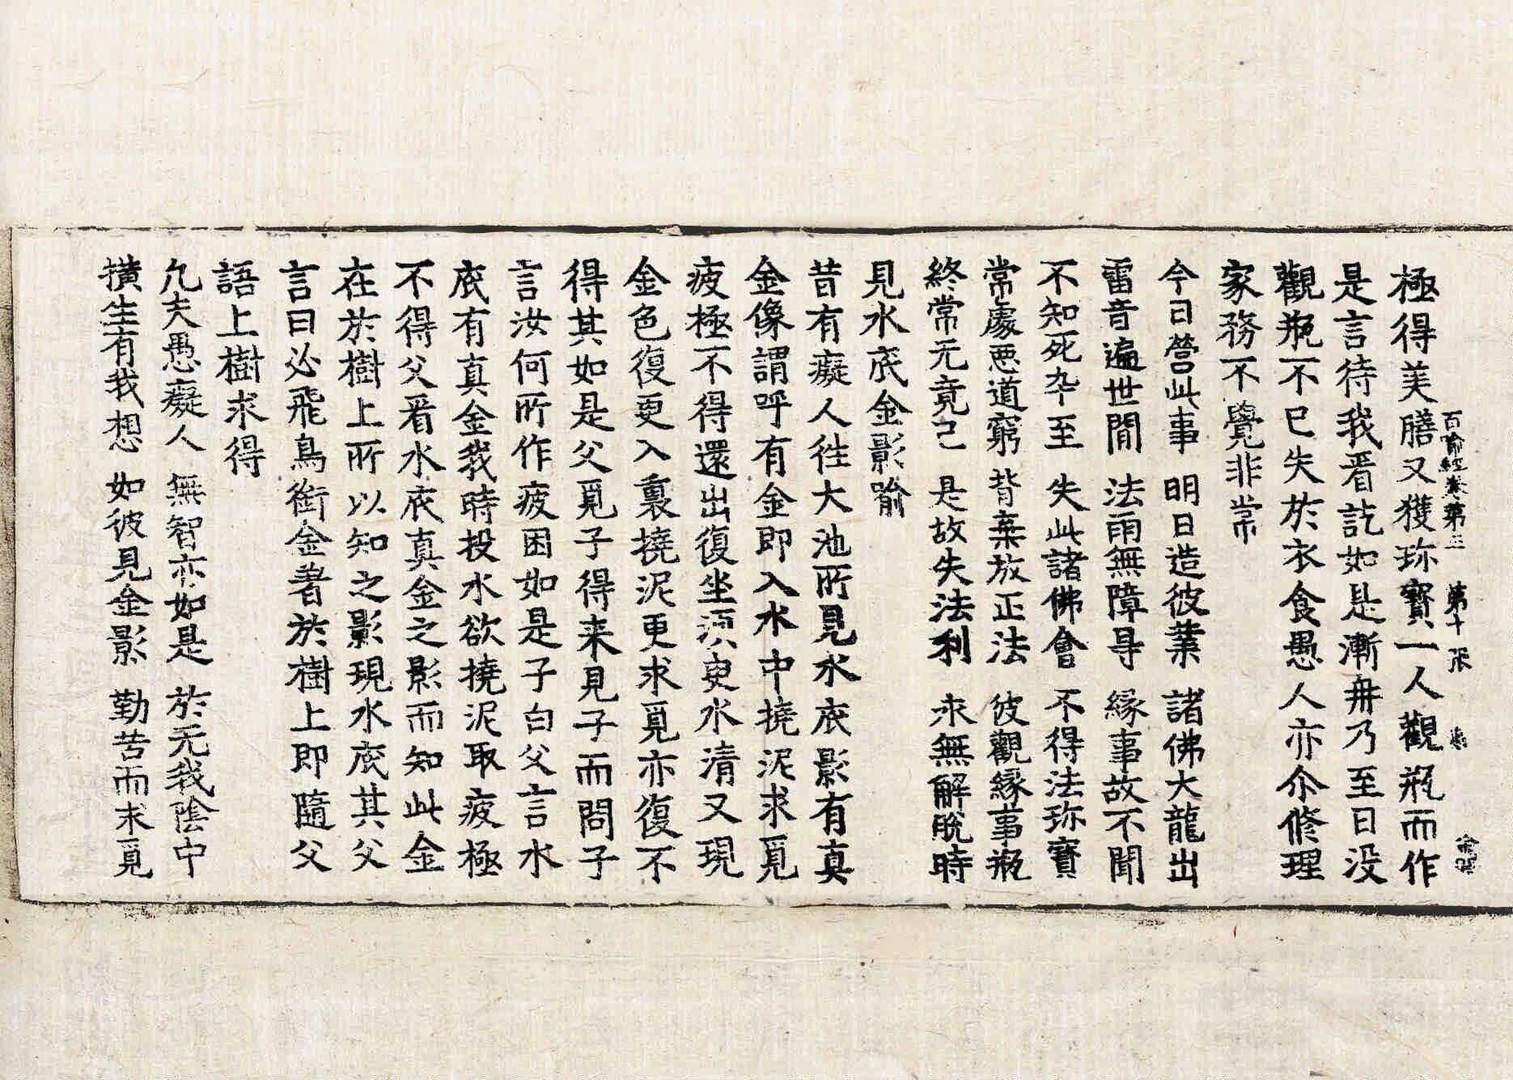 百喻經卷第三 第十張
極得美膳又獲珎寳一人觀瓶而作
是言待我看訖如是漸冉乃至日没
觀瓶不已失於衣食愚人亦尒修理
家務不覺非常
今日營此事 明日造彼業 諸佛大龍出
雷音遍世間 法雨無障㝵 緣事故不聞
不知死卒至 失此諸佛會 不得法珎寳
常處惡道窮 背棄放正法 彼觀緣事瓶
終常无竟已 是故失法利 永無解脫時
見水底金影喻
昔有癡人往大池所見水底影有真
金像謂呼有金即入水中撓泥求覓
疲極不得還出復坐須臾水清又現
金色復更入裏撓泥更求覓亦復不
得其如是父覓子得来見子而問子
言汝何所作疲困如是子白父言水
底有真金我時投水欲撓泥取疲極
不得父看水底真金之影而知此金
在於樹上所以知之影現水底其父
言曰必飛鳥銜金著於樹上即隨父
語上樹求得
凡夫愚癡人 無智亦如是 於无我陰中
撗生有我想 如彼見金影 勤苦而求覓